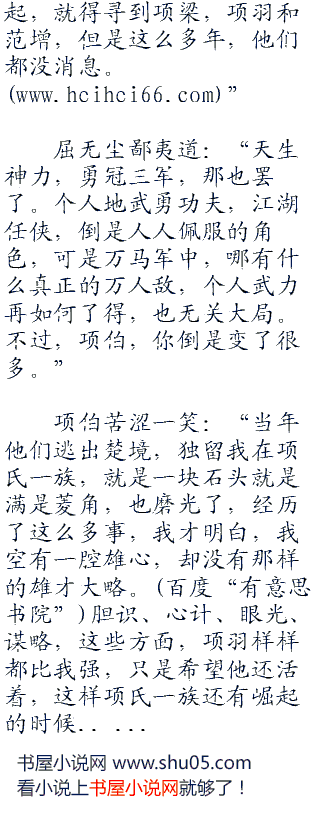 起，就得寻到项梁，项羽和
范增，但是这么多年，他们
都没消息。
(www.hcihci66.com)”
屈无尘鄙夷道：“天生
神力，勇冠三军，那也罢
了。个人地武勇功夫，江湖
任侠，倒是人人佩服的角
色，可是万马军中，哪有什
么真正的万人敌，个人武力
再如何了得，也无关大局。
不过，项伯，你倒是变了很
多。”
项伯苦涩一笑：“当年
他们逃出楚境，独留我在项
氏一族，就是一块石头就是
满是菱角，也磨光了，经历
了这么多事，我才明白，我
空有一腔雄心，却没有那样
的雄才大略。(百度“有意思
书院”)胆识、心计、眼光、
谋略，这些方面，项羽样样
都比我强，只是希望他还活
着，这样项氏一族还有崛起
的时候.. ...
书屋小说网 www.shu05.com
看小说上书屋小说网就够了！